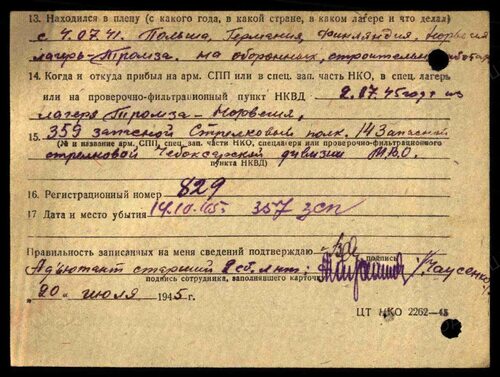 13. Находился в плену (с какого года, в какой стране, в каком лагере и что делал)
с 4.07.41. Польша, Германия, Финляндия, Норвегия
лагерь-Тромза. на оборонных, строительн. работах
14. Когда и откуда прибыл на арм. СПП или в спец. зап. часть НКО, в спец. лагерь
или на проверочно-фильтрационный пункт НКВД 2.07.45 года из
лагеря Тромза-Норвегия,
15. 359 запасной Стрелковый полк. 14 Запасной
(№ и название арм. СПП, спец. зап. части НКО, спецлагеря или проверочно-фильтрационного
стрелковой Чебоксарской дивизии М.В.О.
пункта НКВД)
16. Регистрационный номер 829
17 Дата и место убытия 14.10.45. 357 зсп
Правильность записанных на меня сведений подтверждаю
подпись
Адъютант старший 2 сб. лт:
подпись сотрудника, заполнявшего карточку
„20" июля 1945 г.
ЦТ НКО 2262—45